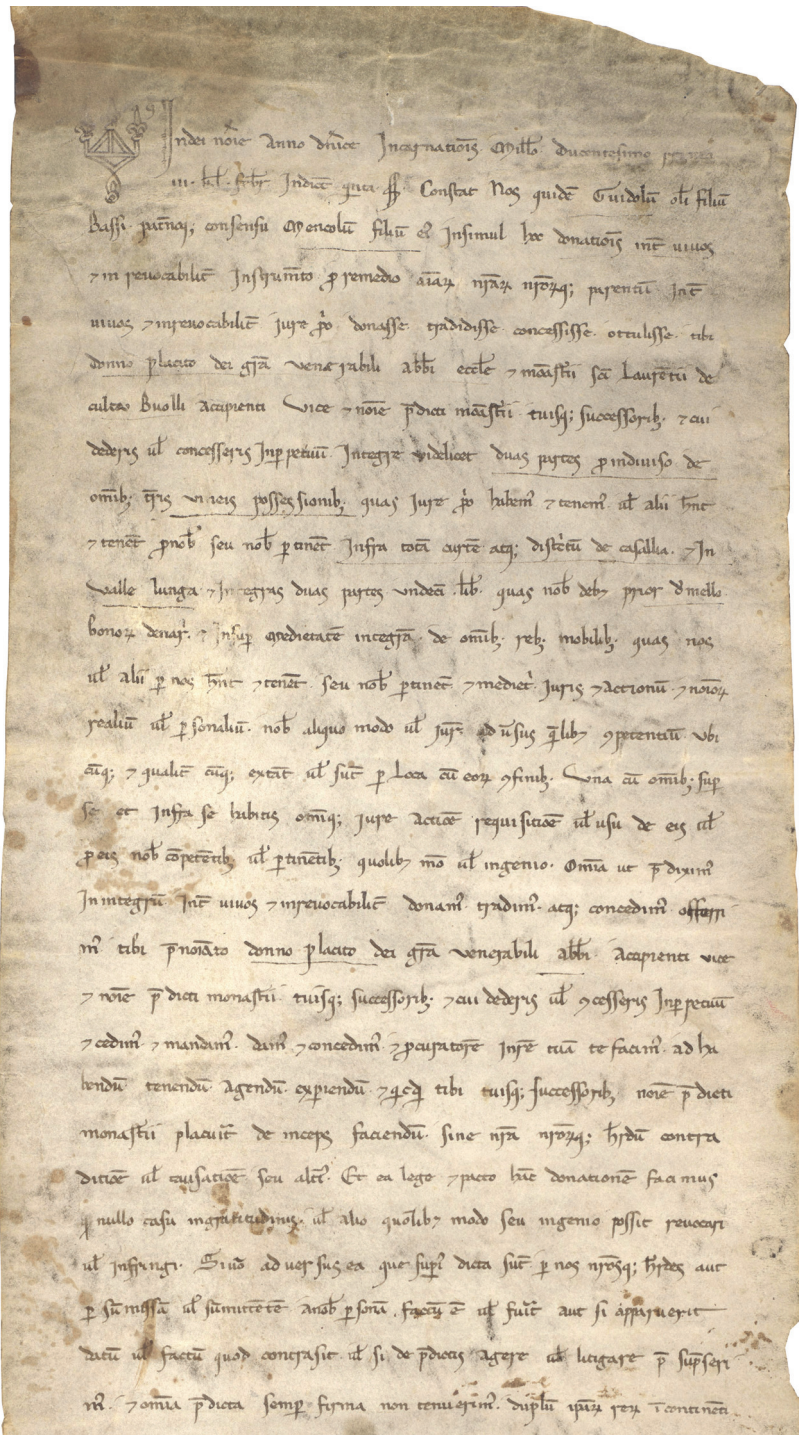 In dei nõie Anno dñice Incarnatiõis Mill̃o Ducentesimo
III kl̃ Indict̃ q̃nta Constat Nos quidẽ Guidolũ ol̃i filiũ
Bassi patr̃nõq; consensu Mencolũ filiũ ei Insimul hoc donatiõis int̃ vivos
⁊ in revocabilit̃ Instrum̃to p remedio aĩarꝝ nr̃arꝝ nr̃orꝝq; parentũ Int̃
vivos ⁊ inrevocabilit̃ iure ꝓo donasse tradidisse concessisse ottulisse tibi
donno placito dei gr̃a venerabili abb̃i eccl̃e ⁊ mãastẽii sc̃i Laurẽtii de
cultu Buolli Accipienti Vice ⁊ nõie p̃dicti mãastẽii tuisq; successorib; ⁊ cui
dederis ul̃ concesseris Inꝑpetuũ Integre videlicet duas partes ꝓ indiviso de
om̃ib; t̃ris vineis possessionib; quas Iure ꝓo habem̃ ⁊ tenem̃ ul̃ alii hñt
⁊ tenẽt ꝓ nob̃ seu nob̃ ꝑtinẽt Infra totã curtẽ atq; distẽtũ de casallia ⁊ In
Valle lunga ⁊ Integras duas partes undeci lib̃ quas nob̃ deb⁊ prior d̃ mello
bonorꝝ denar̃ ⁊ Insuꝑ Medietatẽ integrã de om̃ib; reb; mobilib; quas nos
ul̃ alii ꝑ nos hñt ⁊ tenẽt seu nob̃ ꝑtinẽt ⁊ mediet̃ Iuris ⁊ Actionũ ⁊ nõiorꝝ
realiũ ul̃ ꝑsonaliũ nob̃ aliquo modo ul̃ Iur̃ adṽsus q̃lib⁊ ꝯpetentiũ ubi
cũq; ⁊ qualit̃ cũq; extãt ul̃ sũt ꝑ Loca cũ eorꝝ ꝯfinib; Una cũ om̃ib; suꝑ
se et Infra se habitis om̃iq; iure Actiõe requisitiõe ul̃ usu de eis ul̃
ꝓ eis nob̃ cõpetẽtib; ul̃ ꝑtinẽtib; quolib⁊ mõ ul̃ ingenio Om̃ia ut p̃diximꝰ
In integrũ Int̃ vivos ⁊ inrevocabilit̃ donam̃ tradim̃ atq; concedim̃ offerri
m̃ tibi p̃noĩato donno placito dei gr̃a venerabili abb̃i Accipienti vice
⁊ nõie p̃dicti monastẽii tuisq; successorib; ⁊ cui dederis ul̃ ꝯcesseris Inꝑpetuũ
⁊ cedim̃ ⁊ mandam̃ dam̃ ⁊ concedim̃ ⁊ ꝓcuratorẽ In rẽ tuã te facim̃ ad ha
bendũ tenendũ Agendũ expiendũ ⁊ q̃cq̃d tibi tuisq; successorib; noie p̃dicti
monastẽii placuĩt de inceps faciendũ sine nr̃a nr̃orꝝq; hr̃dũ contra
ditiõe ul̃ causatiõe seu alt̃i Et ea lege ⁊ pacto hãc donationẽ facimus
q̃ nullo casu ingratitudinis ul̃ alio quolib⁊ modo seu ingenio possit revocari
ul̃ infringi Si ṽo adversus ea que supᵃ dicta sũt ꝑ nos nr̃osq; hr̃des aut
ꝑ sũmissã ul̃ sũmittẽtẽ a nob̃ ꝑsonã factũ ẽ ul̃ fuĩt aut si apparuerit
datũ ul̃ factũ quod contrasit ul̃ si de p̃dictis agere ul̃ litigare p̃ sup̃seri
m̃ ⁊ om̃ia p̃dicta semꝑ firma non tenuerim̃ duplũ ip̃arꝝ rerꝝ ĩcontinẽti